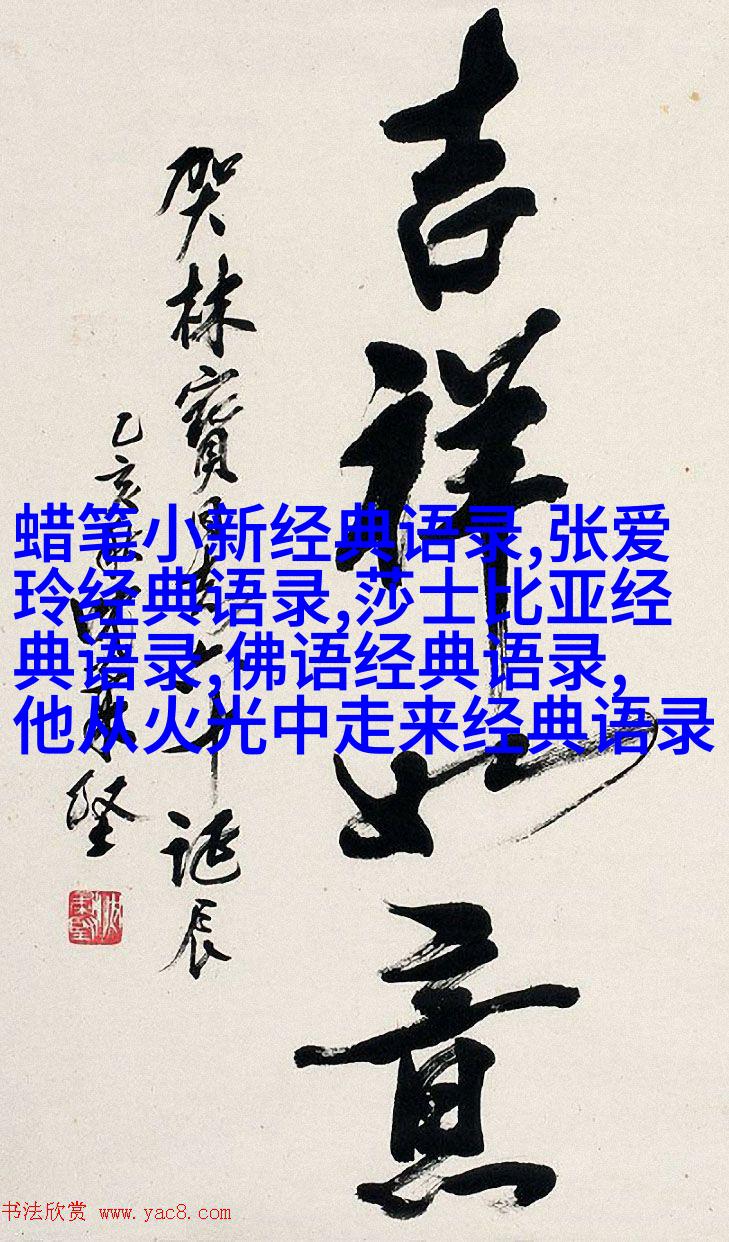 吉祥如意
贺林宝
诞辰
乙亥
蜡笔小新经典语录,张爱
玲经典语录,莎士比亚经
典语录,佛语经典语录,
他从火光中走来经典语录
书法欣赏 www.yac8.com